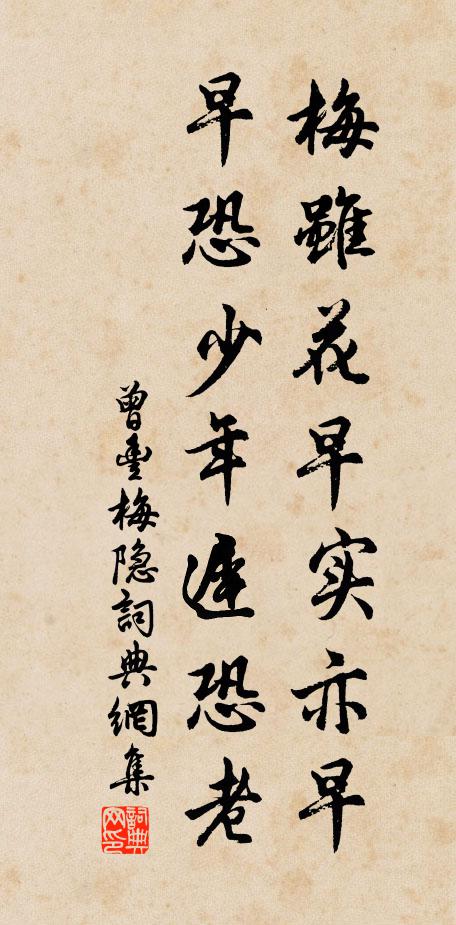 梅雖花早实亦早
早恐少年遲恐老
曾豊梅隐詞典網集
詞典网印